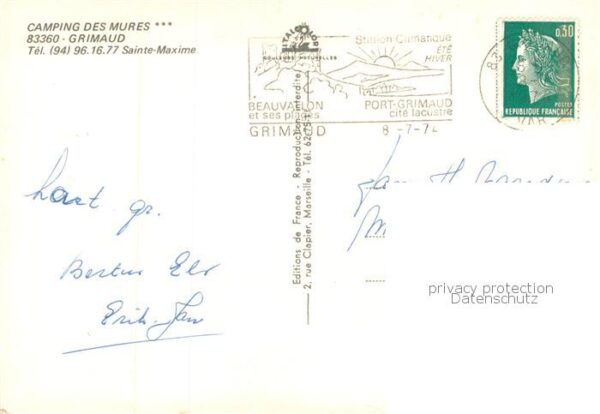 CAMPING DES MURES ***
83360 - GRIMAUD
Tél. (94) 96.16.77 Sainte-Maxime
hart. gr.
Bertus
Erik-Jan
COULEURS NATURELLES
Editions de France - Reproduction interdite
2, rue Clapier, Marseille - Tél.
Station Climatique
ÉTÉ
HIVER
BEAUVALLON
et ses plages
GRIMAUD
PORT-GRIMAUD
cité lacustre
8-7-74
0,30
POSTES
REPUBLIQUE FRANÇAISE
VAR
privacy protection
Datenschutz